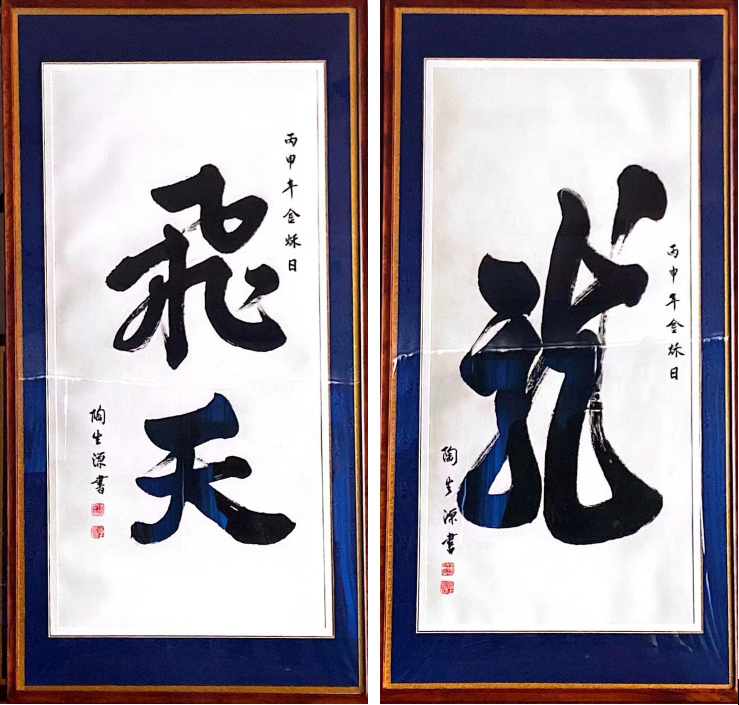 丙申年金秌日
飛天
陶生源書
丙申年金秌日
龍
陶生源書